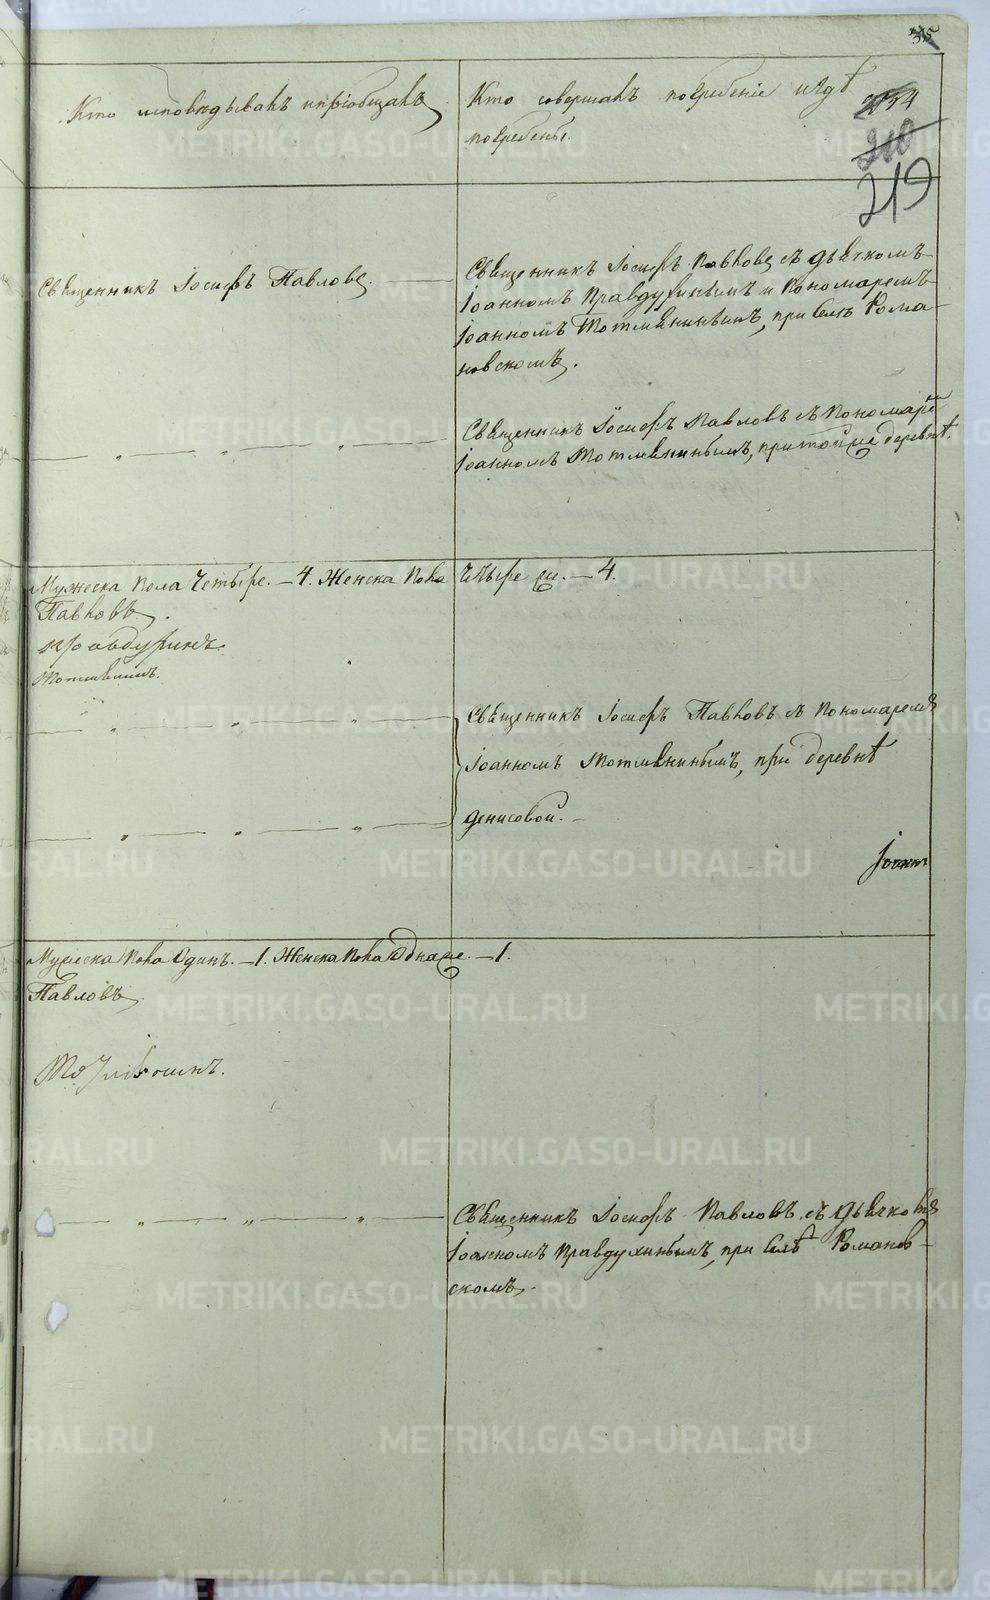 315
219
Кто исповѣдывалъ и пріобщалъ
Кто совершалъ погребеніе и гдѣ
погребены.
Священникъ Іосифъ Павловъ.
Священникъ Іосифъ Павловъ съ дьячкомъ
Іоанномъ Правдухинымъ и Пономаремъ
Іоанномъ Тотмянинымъ, при селѣ Рома-
новскомъ.
Священникъ Іосифъ Павловъ съ Пономаремъ
Іоанномъ Тотмянинымъ, при той же деревнѣ.
Мужеска пола Четыре. — 4. Женска пола Четыре же. — 4.
Павловъ.
Правдухинъ.
Священникъ Іосифъ Павловъ съ Пономаремъ
Іоанномъ Тотмянинымъ, при деревнѣ
Денисовой. —
Іоанн
Мужеска пола Одинъ. — 1. Женска пола Одна же. — 1.
Павловъ.
Священникъ Іосифъ Павловъ съ дьячкомъ
Іоанномъ Правдухинымъ, при селѣ Романов-
скомъ. —
METRIKI.GASO-URAL.RU